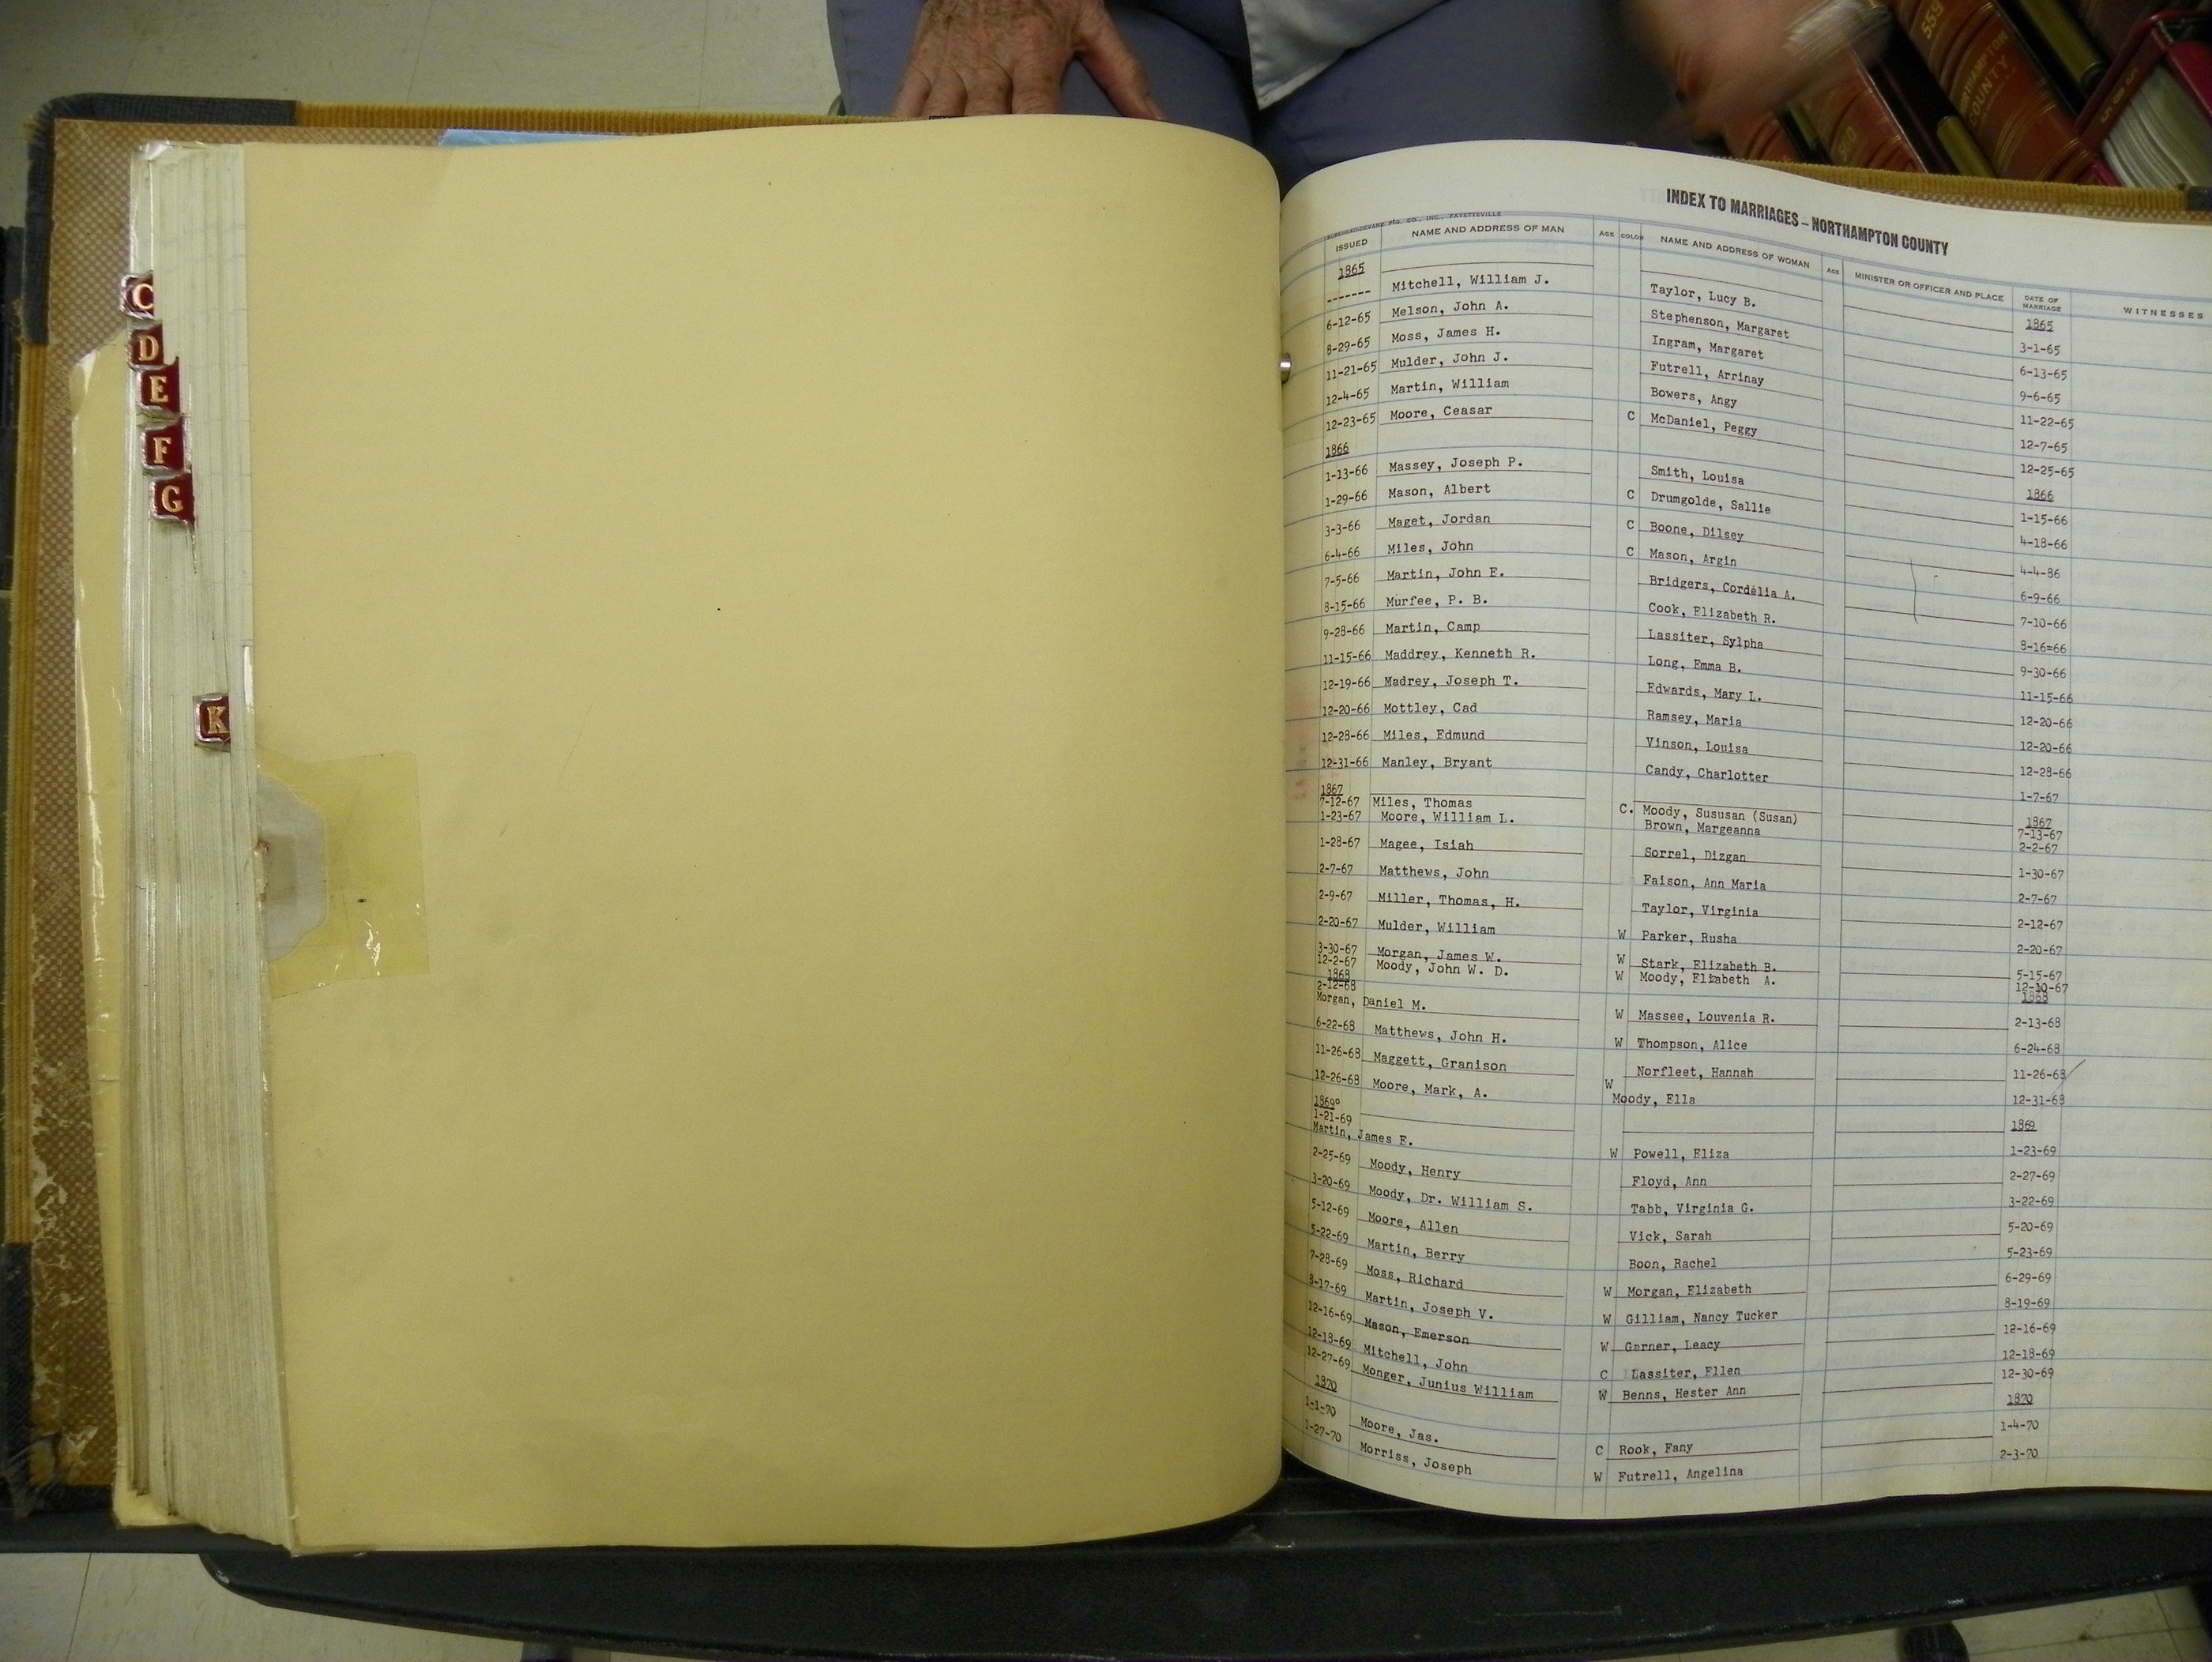 559
NORTHAMPTON
COUNTY
560
C
D
E
F
G
K
INDEX TO MARRIAGES – NORTHAMPTON COUNTY
CO., INC., FAYETTEVILLE
ISSUED NAME AND ADDRESS OF MAN AGE COLOR NAME AND ADDRESS OF WOMAN AGE MINISTER OR OFFICER AND PLACE DATE OF MARRIAGE WITNESSES
1865 1865
------- Mitchell, William J. Taylor, Lucy B. 3-1-65
6-12-65 Melson, John A. Stephenson, Margaret 6-13-65
8-29-65 Moss, James H. Ingram, Margaret 9-6-65
11-21-65 Mulder, John J. Futrell, Arrinay 11-22-65
12-4-65 Martin, William Bowers, Angy 12-7-65
12-23-65 Moore, Ceasar C McDaniel, Peggy 12-25-65
1866 1866
1-13-66 Massey, Joseph P. Smith, Louisa 1-15-66
1-29-66 Mason, Albert C Drumgolde, Sallie 4-18-66
3-3-66 Maget, Jordan C Boone, Dilsey 4-4-86
6-4-66 Miles, John C Mason, Argin 6-9-66
7-5-66 Martin, John E. Bridgers, Cordelia A. 7-10-66
8-15-66 Murfee, P. B. Cook, Elizabeth R. 8-16=66
9-28-66 Martin, Camp Lassiter, Sylpha 9-30-66
11-15-66 Maddrey, Kenneth R. Long, Emma B. 11-15-66
12-19-66 Madrey, Joseph T. Edwards, Mary L. 12-20-66
12-20-66 Mottley, Cad Ramsey, Maria 12-20-66
12-28-66 Miles, Edmund Vinson, Louisa 12-28-66
12-31-66 Manley, Bryant Candy, Charlotter 1-7-67
1867 1867
7-12-67 Miles, Thomas C. Moody, Sususan (Susan) 7-13-67
1-23-67 Moore, William L. Brown, Margeanna 2-2-67
1-28-67 Magee, Isiah Sorrel, Dizgan 1-30-67
2-7-67 Matthews, John Faison, Ann Maria 2-7-67
2-9-67 Miller, Thomas, H. Taylor, Virginia 2-12-67
2-20-67 Mulder, William W Parker, Rusha 2-20-67
3-30-67 Morgan, James W. W Stark, Elizabeth B. 5-15-67
12-2-67 Moody, John W. D. W Moody, Elizabeth A. 12-10-67
1868 1868
2-12-68 Morgan, Daniel M. W Massee, Louvenia R. 2-13-68
6-22-68 Matthews, John H. W Thompson, Alice 6-24-68
11-26-68 Maggett, Granison Norfleet, Hannah 11-26-68
12-26-68 Moore, Mark, A. W Moody, Ella 12-31-68
1869 1869
1-21-69 Martin, James E. W Powell, Eliza 1-23-69
2-25-69 Moody, Henry Floyd, Ann 2-27-69
3-20-69 Moody, Dr. William S. Tabb, Virginia G. 3-22-69
5-12-69 Moore, Allen Vick, Sarah 5-20-69
5-22-69 Martin, Berry Boon, Rachel 5-23-69
7-28-69 Moss, Richard W Morgan, Elizabeth 6-29-69
8-17-69 Martin, Joseph V. W Gilliam, Nancy Tucker 8-19-69
12-16-69 Mason, Emerson W Garner, Leacy 12-16-69
12-18-69 Mitchell, John C Lassiter, Ellen 12-18-69
12-27-69 Monger, Junius William W Benns, Hester Ann 12-30-69
1870 1870
1-1-70 Moore, Jas. C Rook, Fany 1-4-70
1-27-70 Morriss, Joseph W Futrell, Angelina 2-3-70